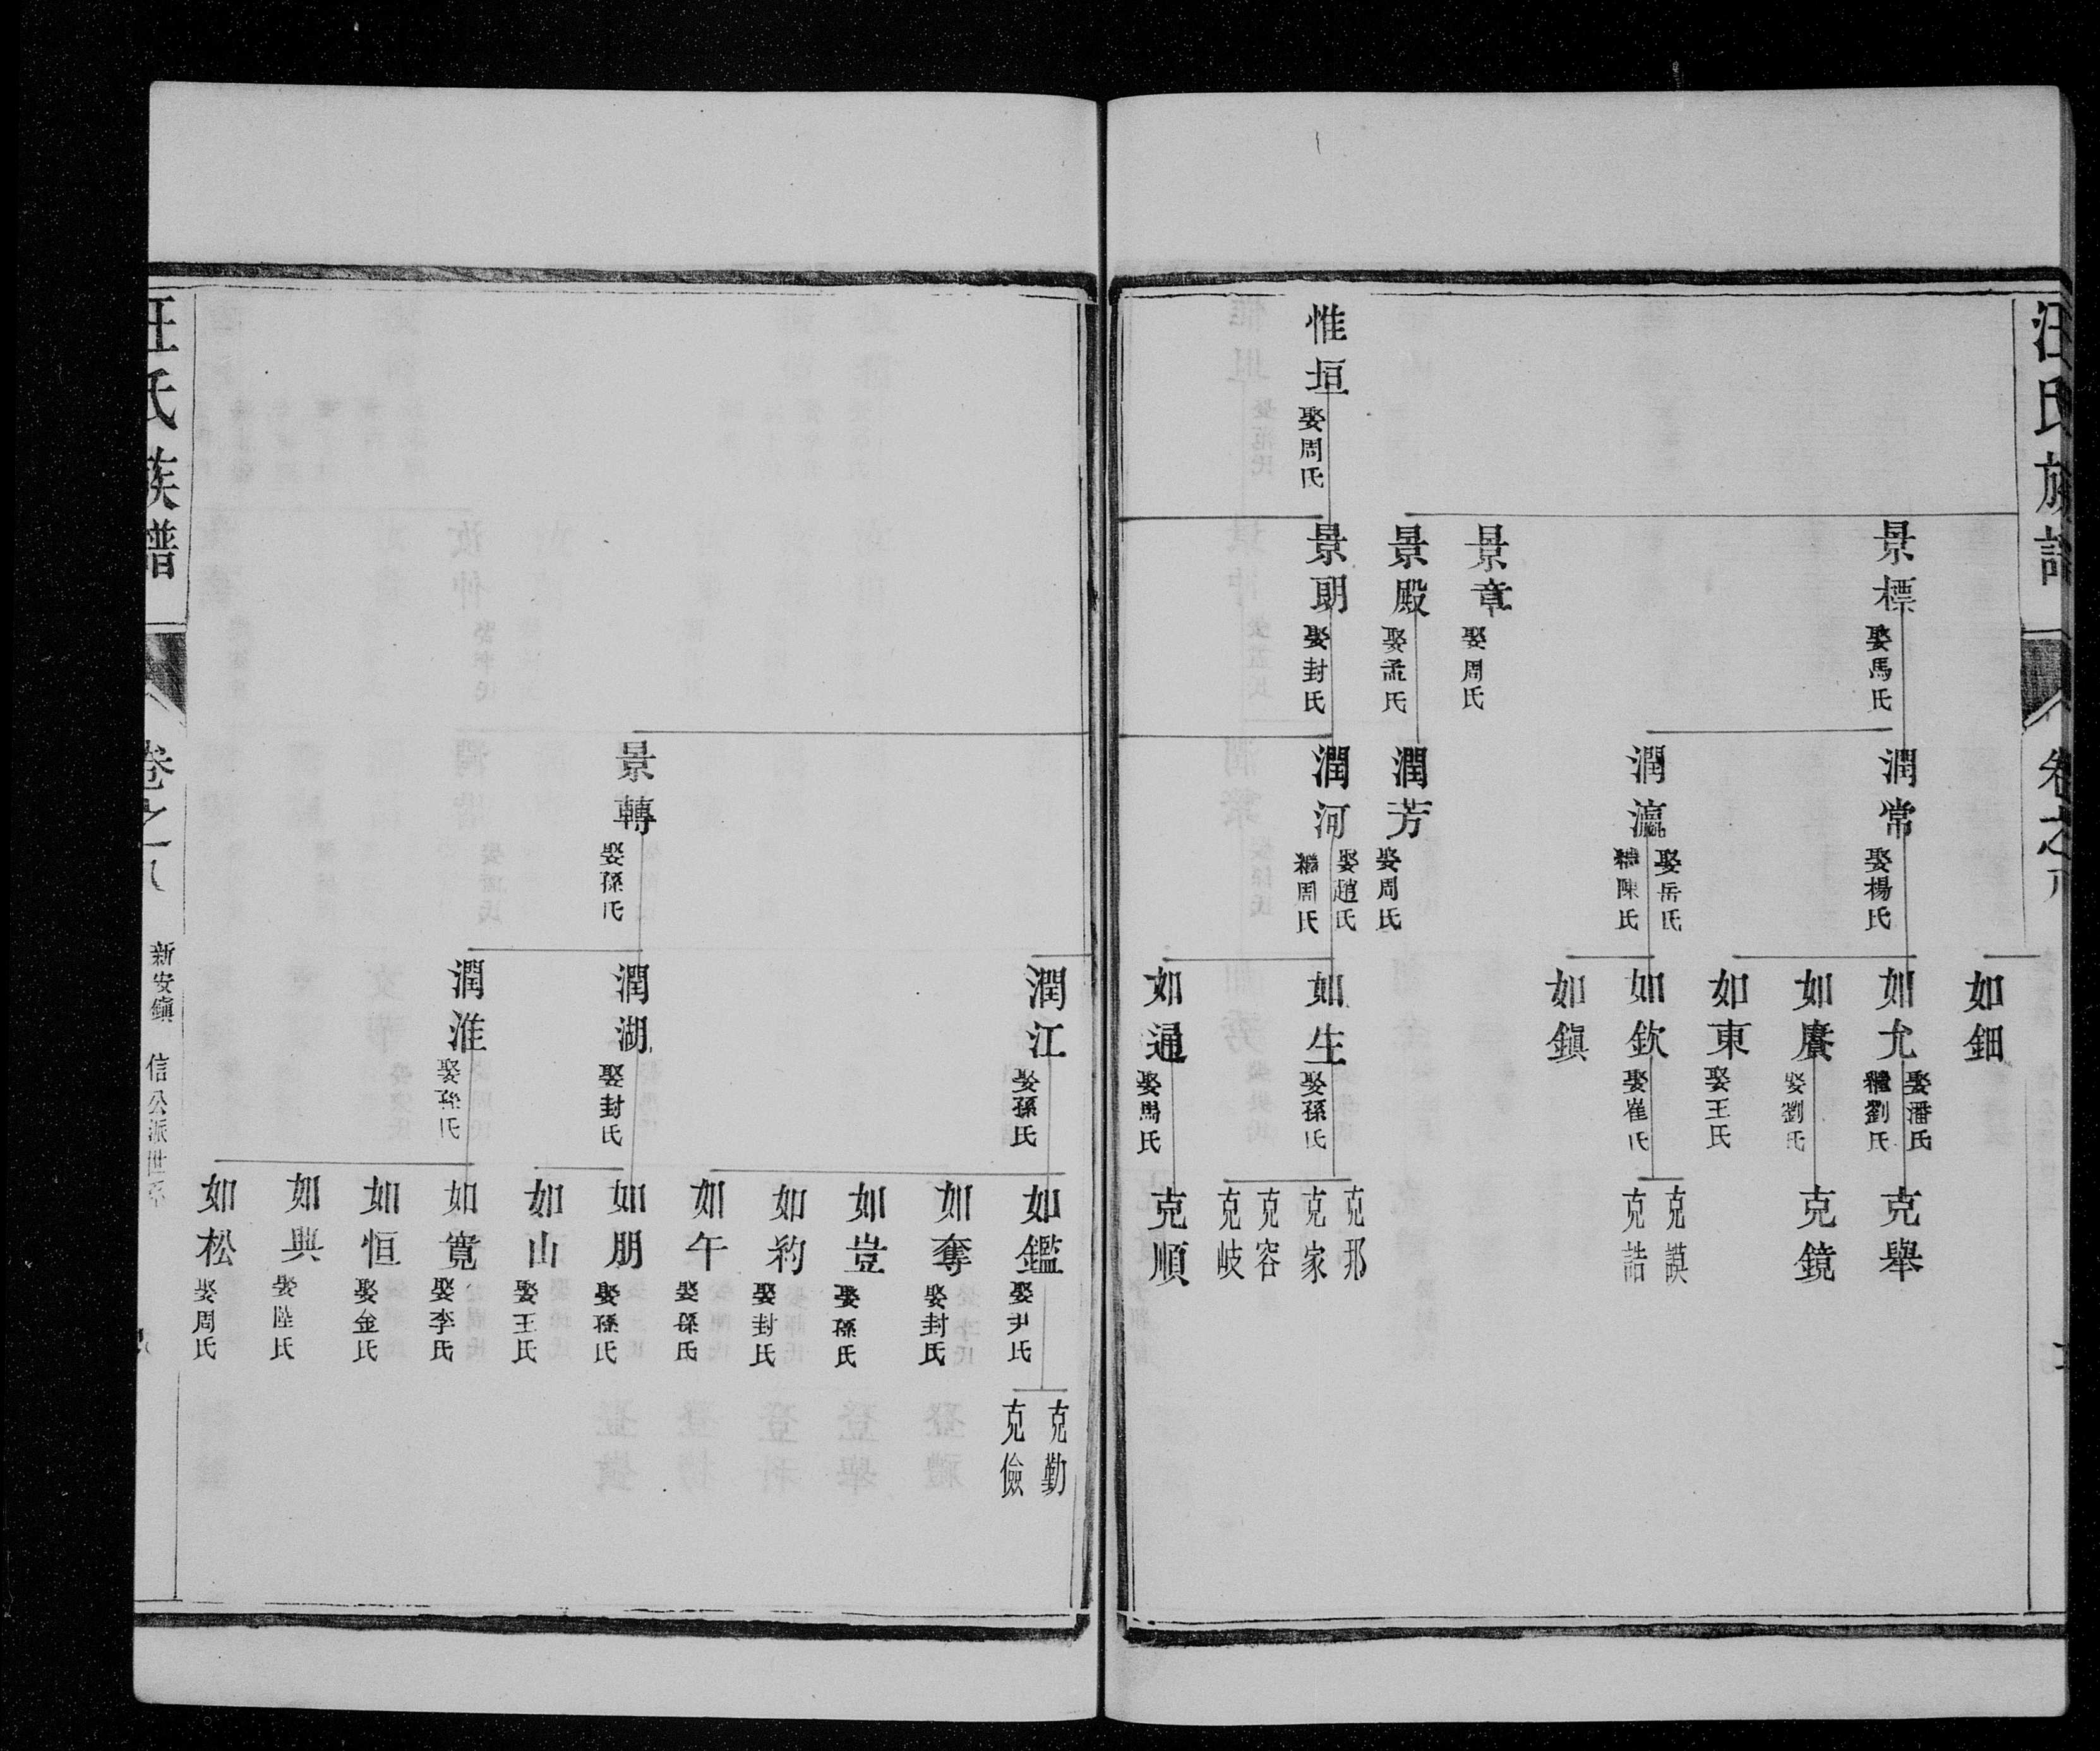 汪氏族譜
卷之八
如鈿
景標
娶馬氏
潤常
娶楊氏
如允
娶潘氏
繼劉氏
克舉
如賡
娶劉氏
克鏡
如東
娶王氏
潤瀛
娶岳氏
繼陳氏
如欽
娶崔氏
克謨
克誥
如鎮
景章
娶周氏
景殿
娶孟氏
潤芳
娶周氏
惟垣
娶周氏
景朗
娶封氏
潤河
娶趙氏
繼周氏
如生
娶孫氏
克邢
克家
克容
克岐
如通
娶馬氏
克順
潤江
娶孫氏
如鑑
娶尹氏
克勤
克儉
如奪
娶封氏
如豈
娶孫氏
如約
娶封氏
如午
娶孫氏
景轉
娶孫氏
潤湖
娶封氏
如朋
娶孫氏
如山
娶王氏
潤淮
娶孫氏
如寬
娶李氏
如恒
娶金氏
如典
娶陸氏
如松
娶周氏
汪氏族譜
卷之八
新安鎮
信公派世系